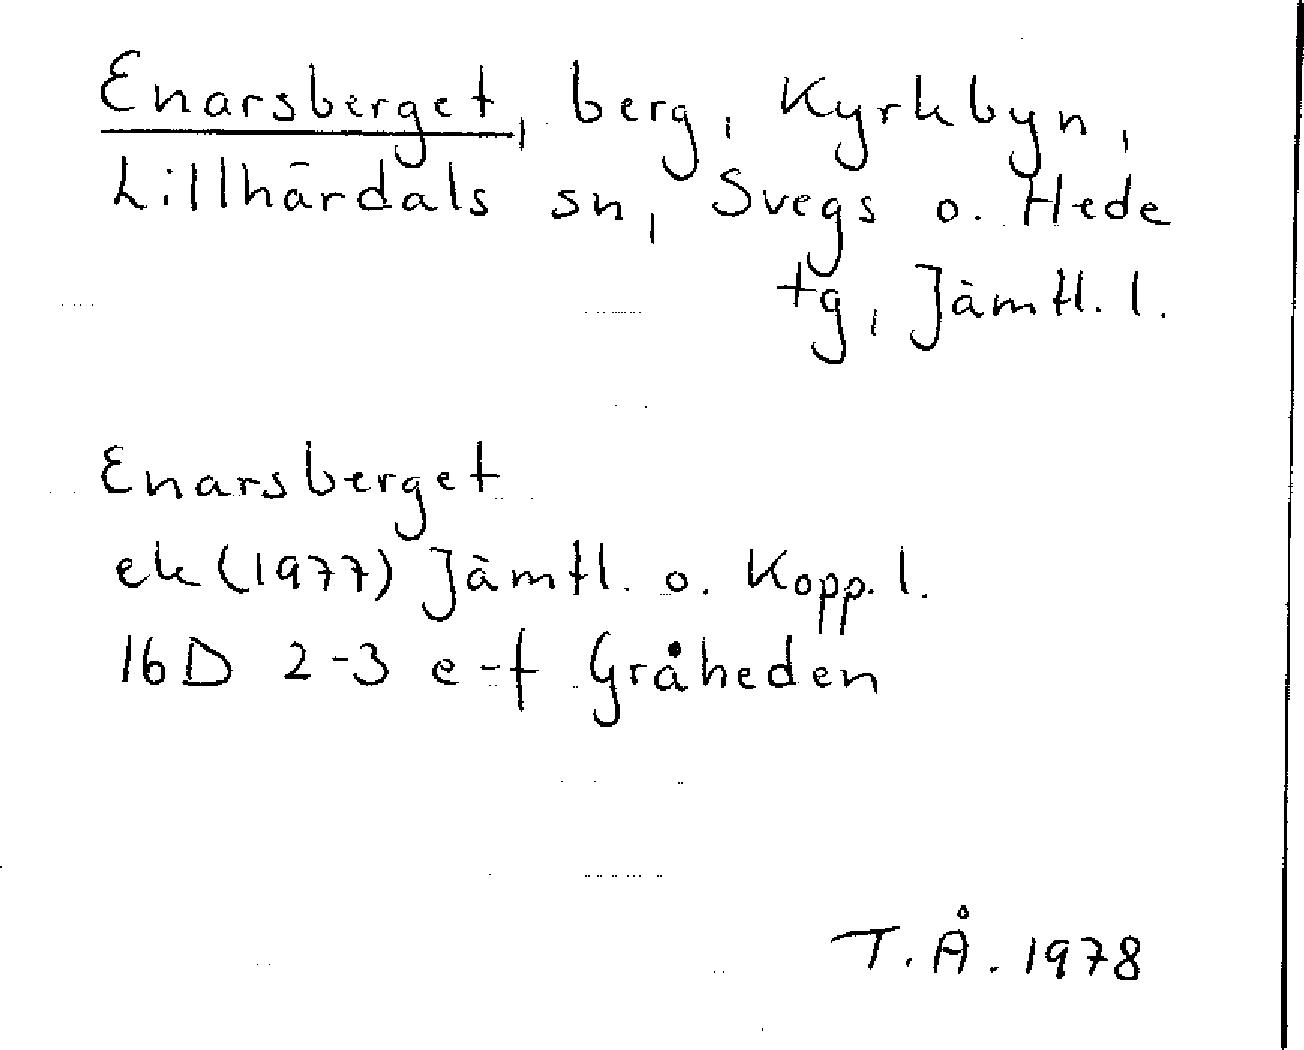 Enarsberget, berg, Kyrkbyn,
Lillhärdals sn, Svegs o. Hede
tg, Jämtl. l.
Enarsberget
ek (1977) Jämtl. o. Kopp. l.
16D 2-3 e-f Gråheden
T. Å. 1978